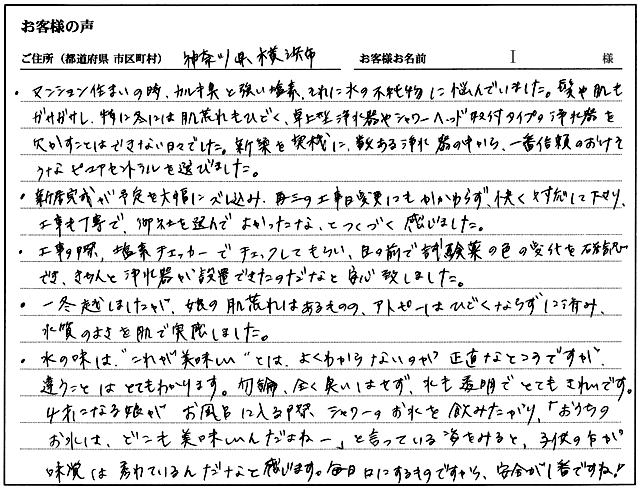 お客様の声
ご住所（都道府県 市区町村） 神奈川県横浜市 お客様お名前 I 様
・マンション住まいの時、カルキ臭と強い塩素、それに水の不純物に悩んでいました。髪や肌も
かさかさし、特に冬には肌荒れもひどく、卓上型浄水器やシャワーヘッド取付タイプの浄水器を
欠かすことはできない日々でした。新築を契機に、数ある浄水器の中から、一番信頼のおけそ
うなピュアセントラルを選びました。
・新居完成が予定を大幅にズレ込み、再三の工事日変更にもかかわらず、快く対応して下さり、
工事も丁寧で、御社を選んでよかったなとつくづく感じました。
・工事の際、塩素チェッカーでチェックしてもらい、目の前で試験薬の色の変化を確認
でき、きちんと浄水器が設置できたのだなと安心致しました。
・一冬越しましたが、娘の肌荒れはあるものの、アトピーはひどくならずに済み、
水質のよさを肌で実感しました。
・水の味は、“これが美味しい”とは、よくわからないのが正直なところですが、
違うことはとてもわかります。勿論、全く臭いはせず、水も透明でとてもきれいです。
4才になる娘が お風呂に入る際、シャワーのお水を飲みたがり、「おうちの
お水は、どこも美味しいんだよねー」と言っている姿をみると、子供の方が
味覚は優れているんだなと感じます。毎日口にするものですから、安全が1番ですね!!